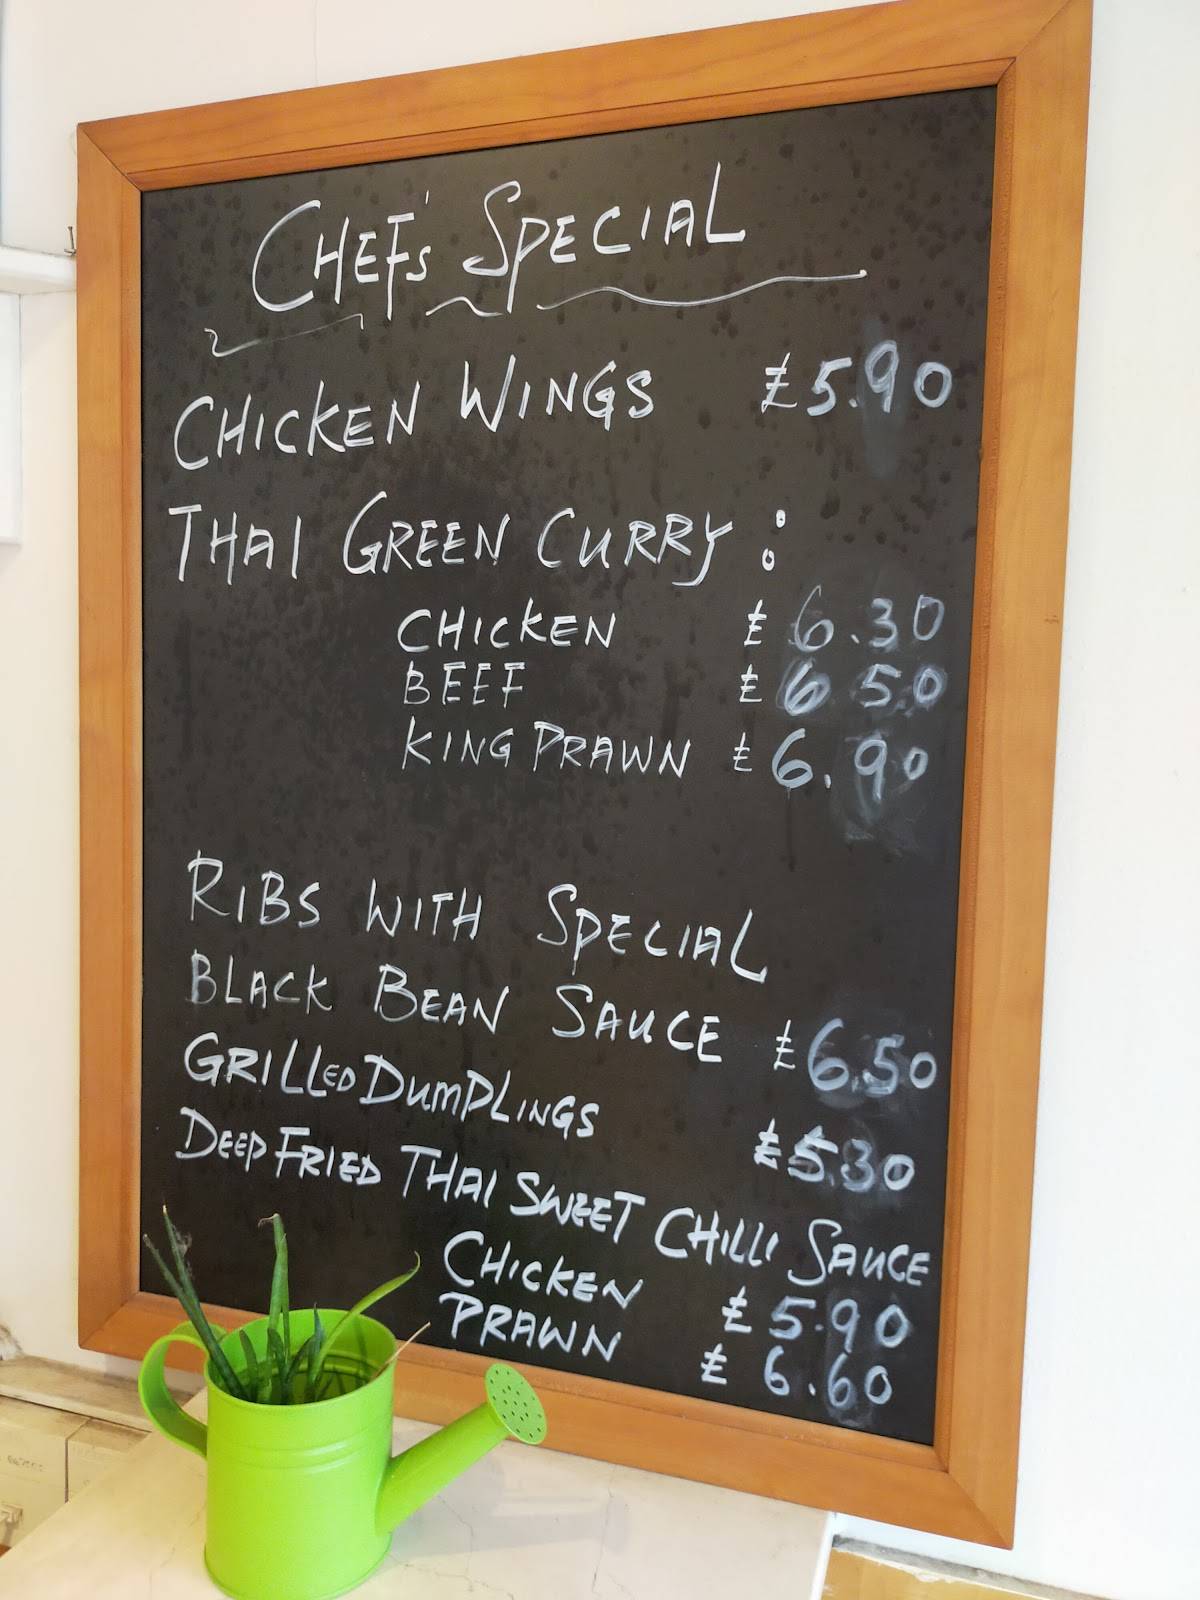 CHEF'S SPECIAL
CHICKEN WINGS £5.90
THAI GREEN CURRY :
CHICKEN £ 6.30
BEEF £ 6.50
KING PRAWN £ 6.90
RIBS WITH SPECIAL
BLACK BEAN SAUCE £6.50
GRILLED DUMPLINGS £5.30
DEEP FRIED THAI SWEET CHILLI SAUCE
CHICKEN £ 5.90
PRAWN £ 6.60